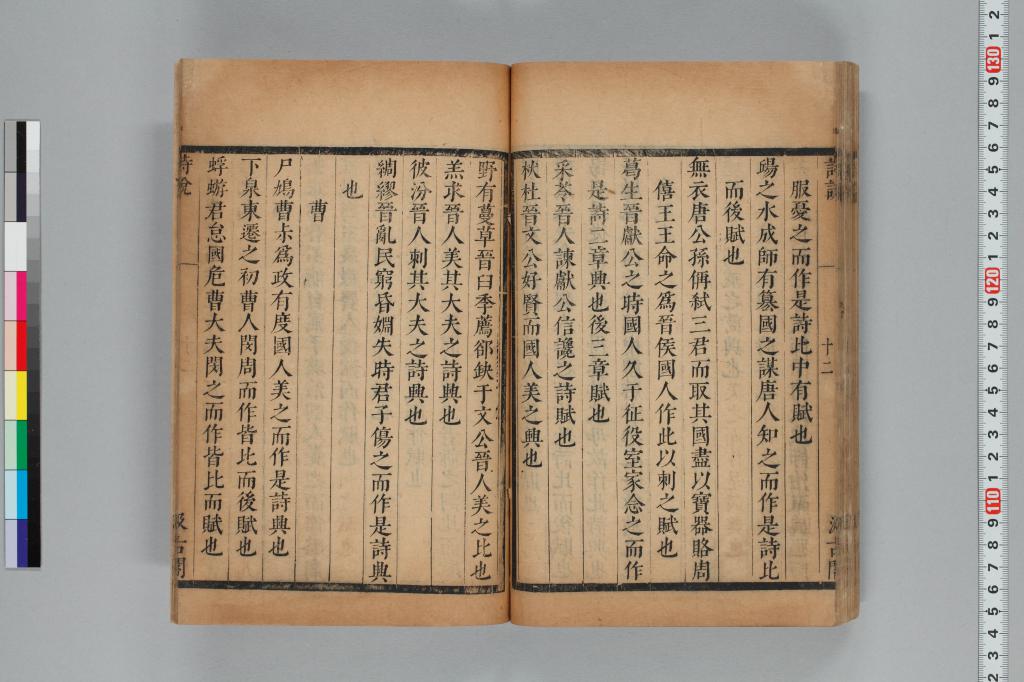 服憂之而作是詩比中有賦也
颺之水成師有篡國之謀唐人知之而作是詩比
而後賦也
無衣唐公孫偁弑三君而取其國盡以寶器賂周
僖王王命之爲晉侯國人作此以刺之賦也
葛生晉獻公之時國人久于征役室家念之而作
是詩二章興也後三章賦也
采苓晉人諫獻公信讒之詩賦也
杕杜晉文公好賢而國人美之興也
野有蔓草晉臼季薦郤缺于文公晉人美之比也
羔求晉人美其大夫之詩興也
彼汾晉人刺其大夫之詩興也
綢繆晉亂民窮昏姻失時君子傷之而作是詩興
也
曹
尸鳩曹尗爲政有度國人美之而作是詩興也
下泉東遷之初曹人閔周而作皆比而後賦也
蜉蝣君怠國危曹大夫閔之而作皆比而賦也
詩說
十二
汲古閣